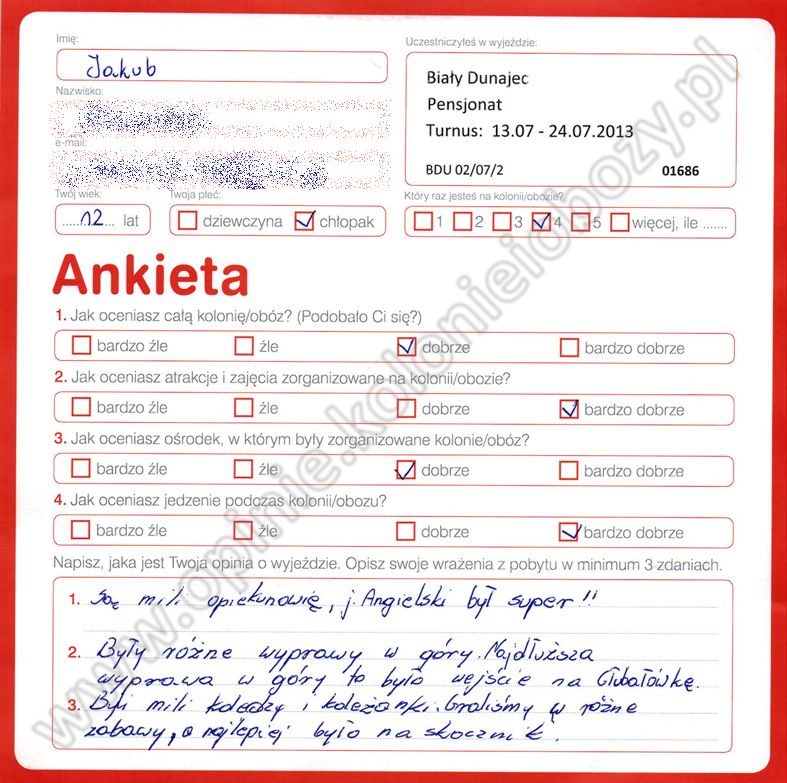 Imię:
Jakub
Uczestniczyłeś w wyjeździe:
Biały Dunajec
Pensjonat
Turnus: 13.07 - 24.07.2013
BDU 02/07/2 01686
Nazwisko:
e-mail:
Twój wiek: Twoja płeć: Który raz jesteś na kolonii/obozie?
12 lat dziewczyna chłopak 1 2 3 4 5 więcej, ile .......
Ankieta
1. Jak oceniasz całą kolonię/obóz? (Podobało Ci się?)
bardzo źle źle dobrze bardzo dobrze
2. Jak oceniasz atrakcje i zajęcia zorganizowane na kolonii/obozie?
bardzo źle źle dobrze bardzo dobrze
3. Jak oceniasz ośrodek, w którym były zorganizowane kolonie/obóz?
bardzo źle źle dobrze bardzo dobrze
4. Jak oceniasz jedzenie podczas kolonii/obozu?
bardzo źle źle dobrze bardzo dobrze
Napisz, jaka jest Twoja opinia o wyjeździe. Opisz swoje wrażenia z pobytu w minimum 3 zdaniach.
1. Są mili opiekunowię, j. Angielski był super!!
2. Były różne wyprawy w góry. Najdłuższa
wyprawa w góry to było wejście na Gubałówkę.
3. Byli mili koledzy i koleżanki. Graliśmy w różne
zabawy, a najlepiej było na skocznik.
www.opinie.kolonieiobozy.pl